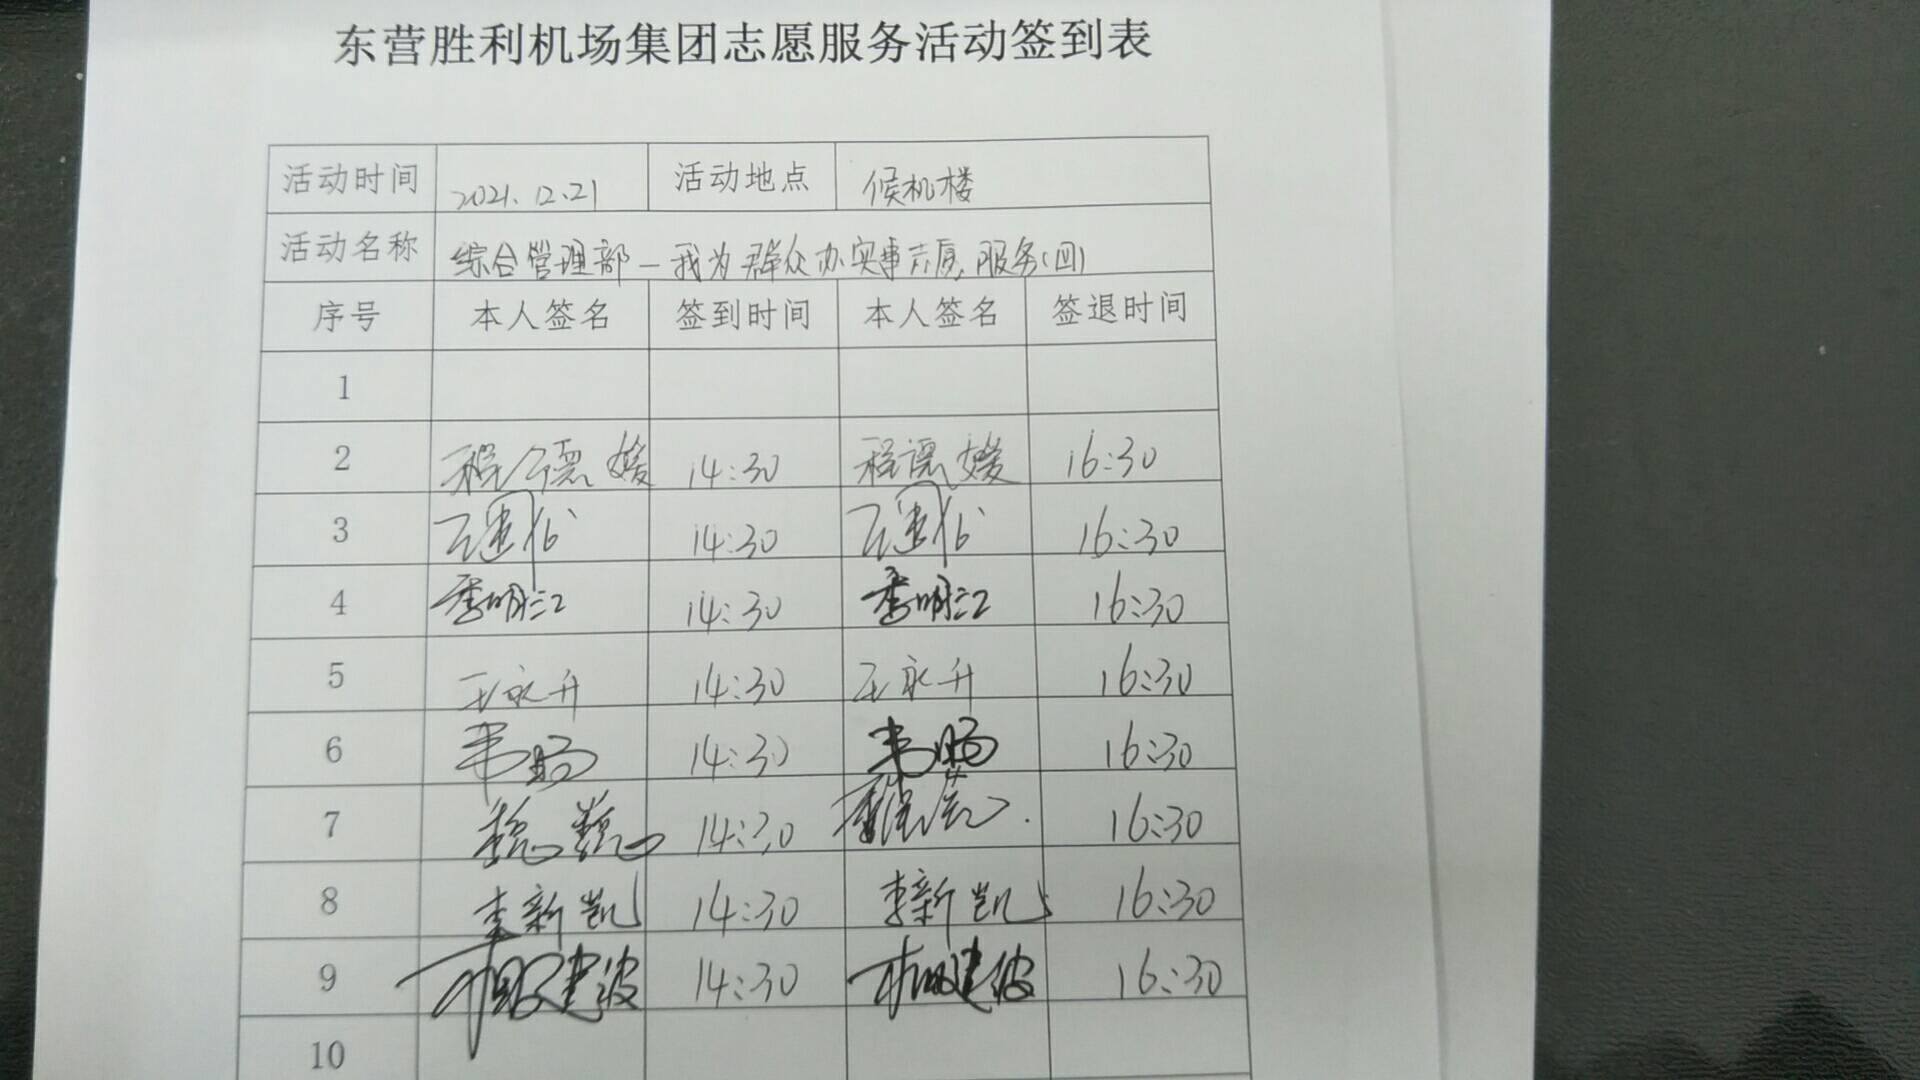 东营胜利机场集团志愿服务活动签到表
活动时间 2021.12.21 活动地点 候机楼
活动名称 综合管理部-我为群众办实事志愿服务(四)
序号 本人签名 签到时间 本人签名 签退时间
1
2 程德媛 14:30 程德媛 16:30
3 14:30 16:30
4 李明江 14:30 李明江 16:30
5 王永升 14:30 王永升 16:30
6 14:30 16:30
7 14:30 16:30
8 李新凯 14:30 李新凯 16:30
9 14:30 16:30
10